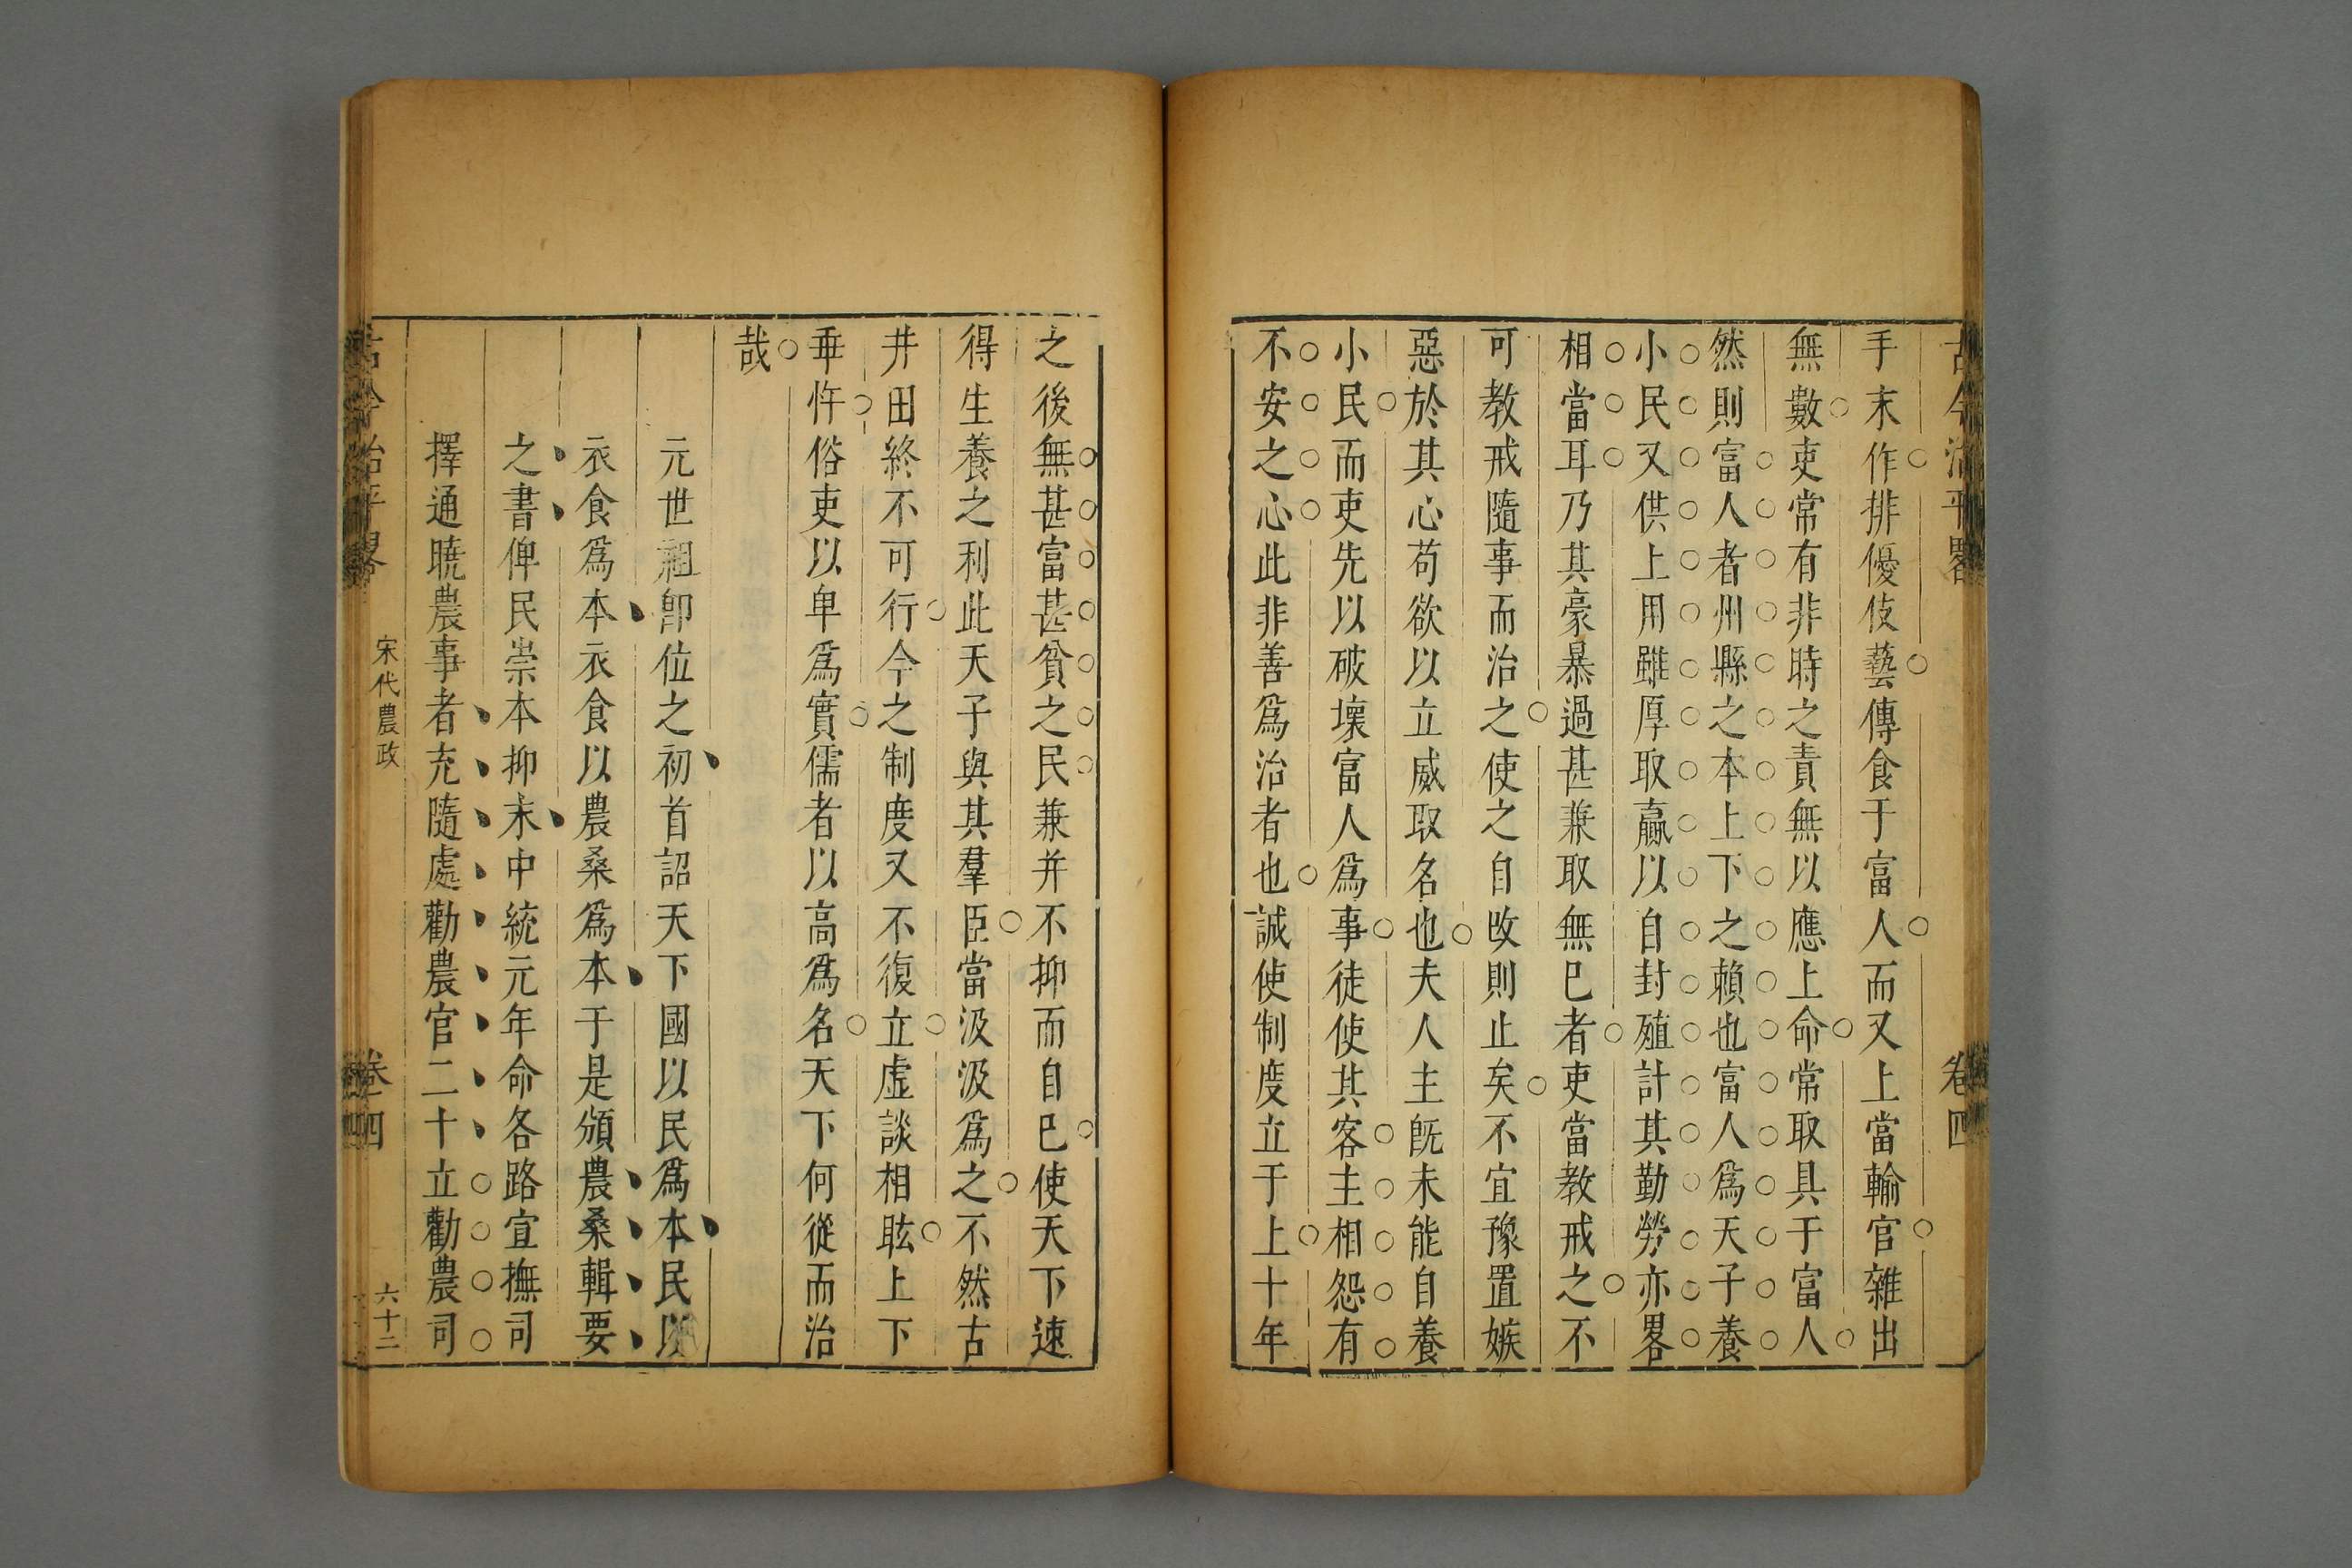 古今治平畧
卷四
手末作排優伎藝傳食于富人而又上當輸官雜出
無數吏常有非時之責無以應上命常取具于富人
然則富人者州縣之本上下之賴也富人爲天子養
小民又供上用雖厚取贏以自封殖計其勤勞亦畧
相當耳乃其豪暴過甚兼取無已者吏當教戒之不
可教戒隨事而治之使之自攺則止矣不宜豫置嫉
惡於其心苟欲以立威取名也夫人主旣未能自養
小民而吏先以破壞富人爲事徒使其客主相怨有
不安之心此非善爲治者也誠使制度立于上十年
之後無甚富甚貧之民兼并不抑而自已使天下速
得生養之利此天子與其羣臣當汲汲爲之不然古
井田終不可行今之制度又不復立虛談相眩上下
乖忤俗吏以卑爲實儒者以高爲名天下何從而治
哉
元世祖卽位之初首詔天下國以民爲本民以
衣食爲本衣食以農桑爲本于是頒農桑輯要
之書俾民崇本抑末中統元年命各路宣撫司
擇通曉農事者充隨處勸農官二十立勸農司
古今治平畧
宋代農政
卷四
六十二